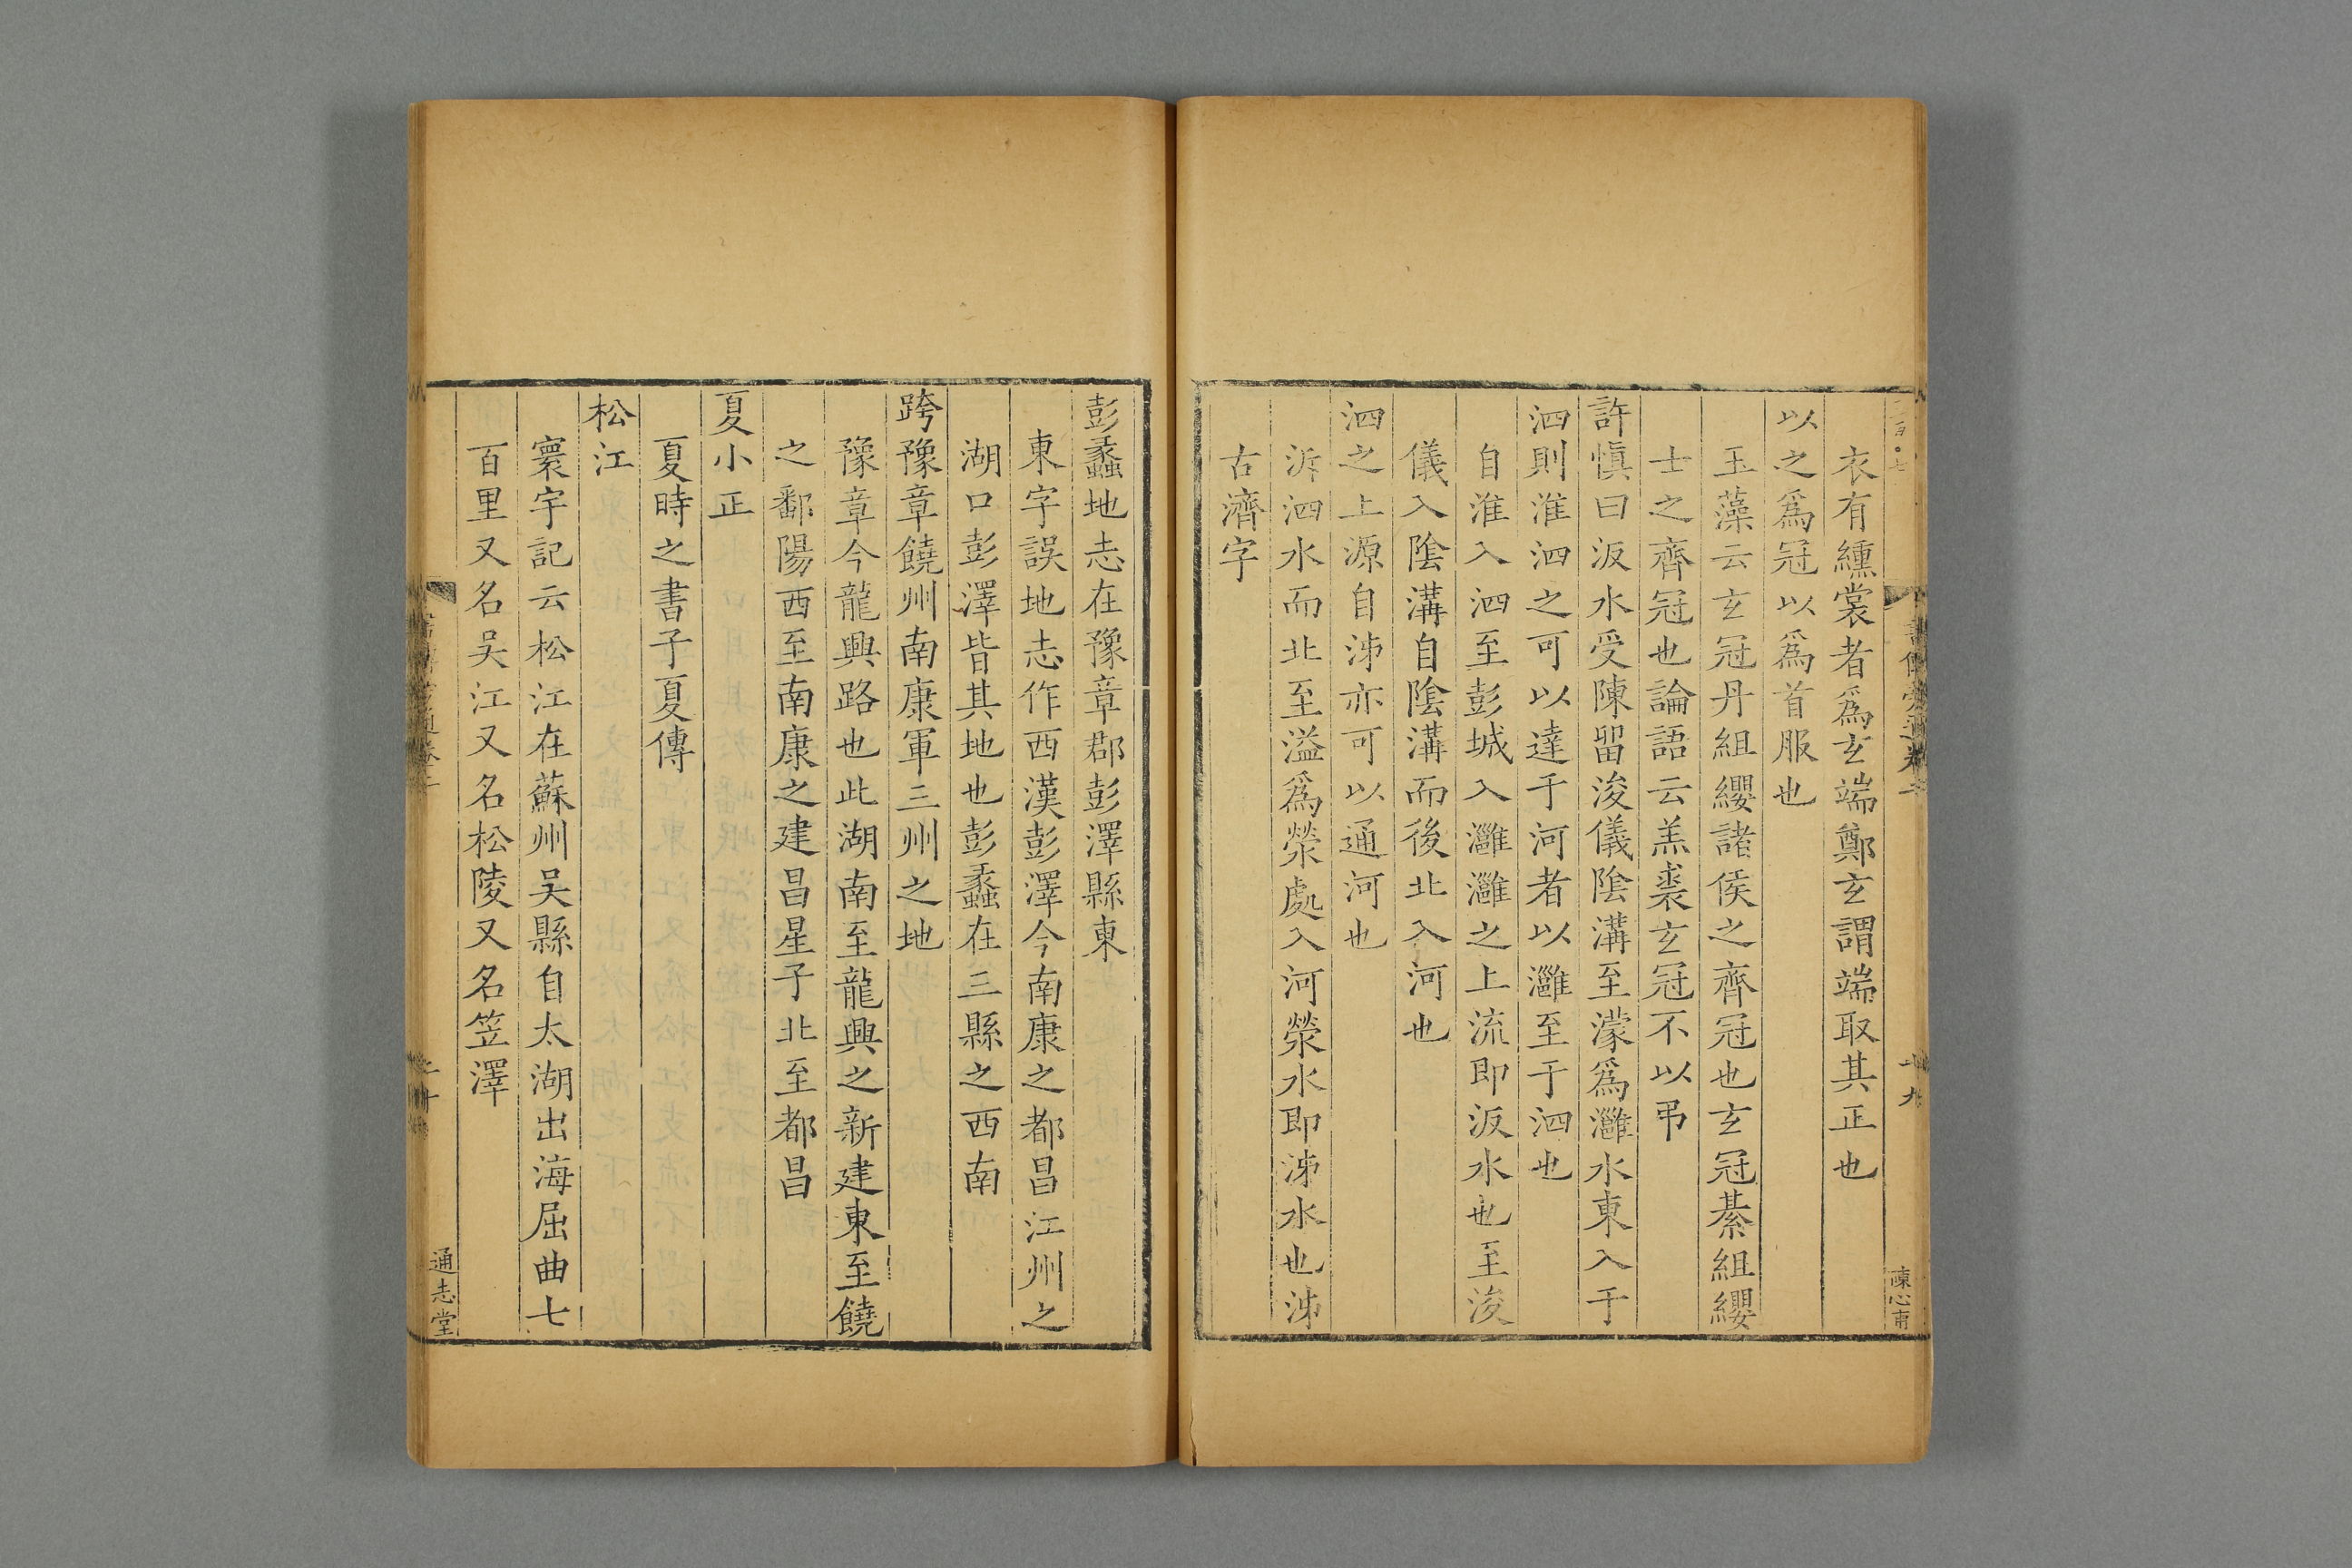 衣有纁裳者爲玄端鄭玄謂端取其正也
以之爲冠以爲首服也
玉藻云玄冠丹組纓諸侯之齊冠也玄冠綦組纓
士之齊冠也論語云羔裘玄冠不以弔
許慎曰汳水受陳留浚儀陰溝至濛爲灉水東入于
泗則淮泗之可以達于河者以灉至于泗也
自淮入泗至彭城入灉灉之上流即汳水也至浚
儀入陰溝自陰溝而後北入河也
泗之上源自泲亦可以通河也
泝泗水而北至溢爲滎處入河滎水即泲水也泲
古濟字
十九
陳心甫
彭蠡地志在豫章郡彭澤縣東
東字誤地志作西漢彭澤今南康之都昌江州之
湖口彭澤皆其地也彭蠡在三縣之西南
跨豫章饒州南康軍三州之地
豫章今龍興路也此湖南至龍興之新建東至饒
之鄱陽西至南康之建昌星子北至都昌
夏小正
夏時之書子夏傳
松江
寰宇記云松江在蘇州吳縣自太湖出海屈曲七
百里又名吳江又名松陵又名笠澤
通志堂